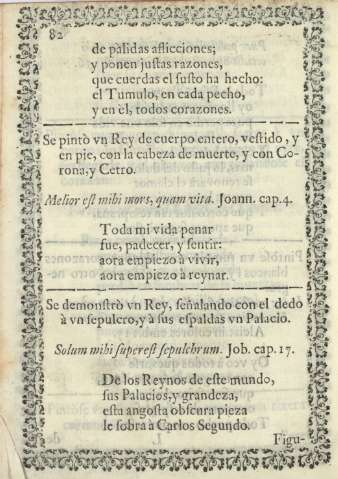 82
de palidas aflicciones;
y ponen juſtas razones,
que cuerdas el ſuſto ha hecho:
el Tumulo, en cada pecho,
y en èl, todos corazones.
Se pintò vn Rey de cuerpo entero, veſtido, y
en pie, con la cabeza de muerte, y con Co-
rona, y Cetro.
Melior eſt mihi mors, quam vita. Joann. cap. 4.
Toda mi vida penar
fue, padecer, y ſentir:
aora empiezo à vivir,
aora empiezo à reynar.
Se demonſtrò vn Rey, ſeñalando con el dedo
à vn ſepulcro, y à sus eſpaldas vn Palacio.
Solum mihi ſupereſt ſepulchrum. Job. cap. 17.
De los Reynos de eſte mundo,
ſus Palacios, y grandeza,
eſta anguſta obſcura pieza
le ſobra à Carlos Segundo.
Figu-